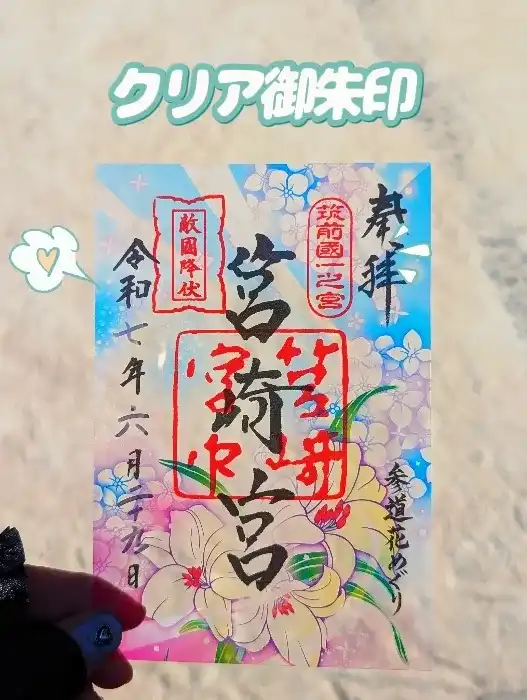 クリア御朱印
奉拝
筑前國一之宮
敵國降伏
筥崎宮
筥崎宮印
参道花めぐり
令和七年六月二十九日